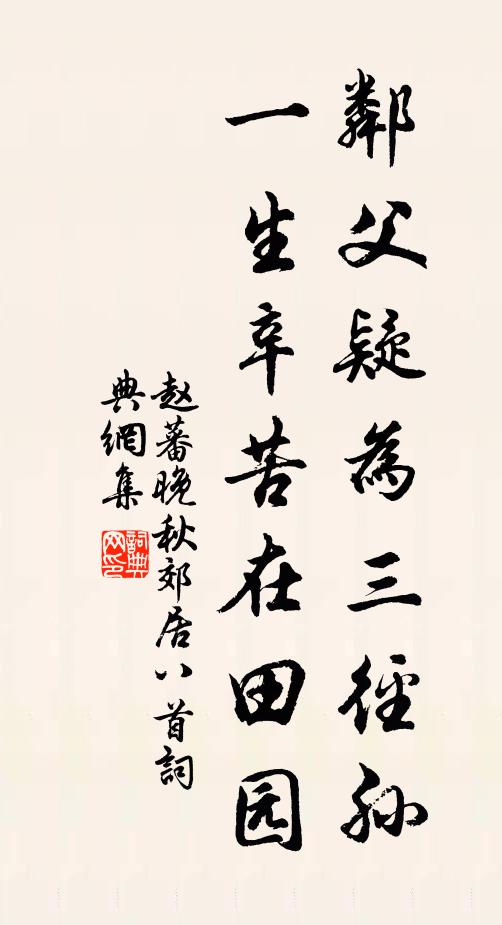 鄰父疑為三徑孙
一生辛苦在田园
赵蕃晚秋郊居八首詞
典網集
詞典
网印